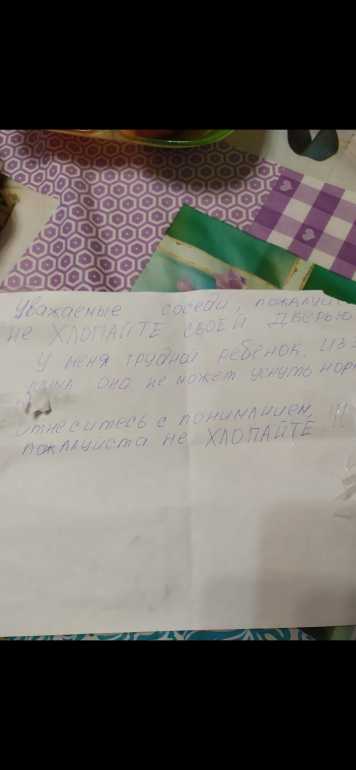 Уважаемые соседи, пожалуйс
не ХЛОПАЙТЕ СВОЕЙ ДВЕРЬЮ
У меня грудной ребенок. Из-з
она не может уснуть норм
Отнеситесь с пониманием,
пожалуйста не ХЛОПАЙТЕ